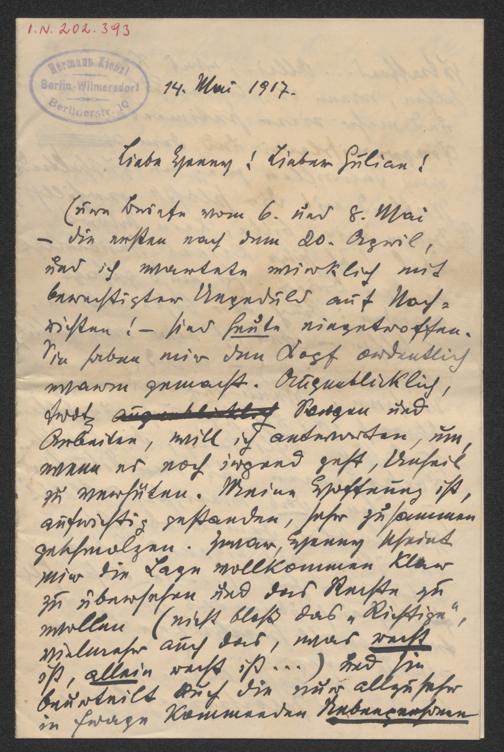 I.N. 202.393
Hermann Kienzl
Berlin-Wilmersdorf
Berlinerstr. 10
14. Mai 1917.
Liebe Henny! Lieber Julian!
Eure Briefe vom 6. und 8. Mai
– die ersten nach dem 20. April,
und ich wartete wirklich mit
berechtigter Ungeduld auf Nach-
richten! – sind heute eingetroffen.
Sie haben mir den Kopf ordentlich
warm gemacht. Augenblicklich,
trotz augenblicklich Sorgen und
Arbeiten, will ich antworten, um,
wenn es noch irgend geht, Unheil
zu verhüten. Meine Hoffnung ist,
aufrichtig gestanden, sehr zusammen
geschmolzen. Zwar, Henny scheint
mir die Lage vollkommen klar
zu übersehen und das Rechte zu
wollen (nicht bloß das „Richtige“,
vielmehr auch das, was recht
ist, allein recht ist ...) und sie
beurteilt auch die nur allzusehr
in Frage kommenden Nebenpersonen